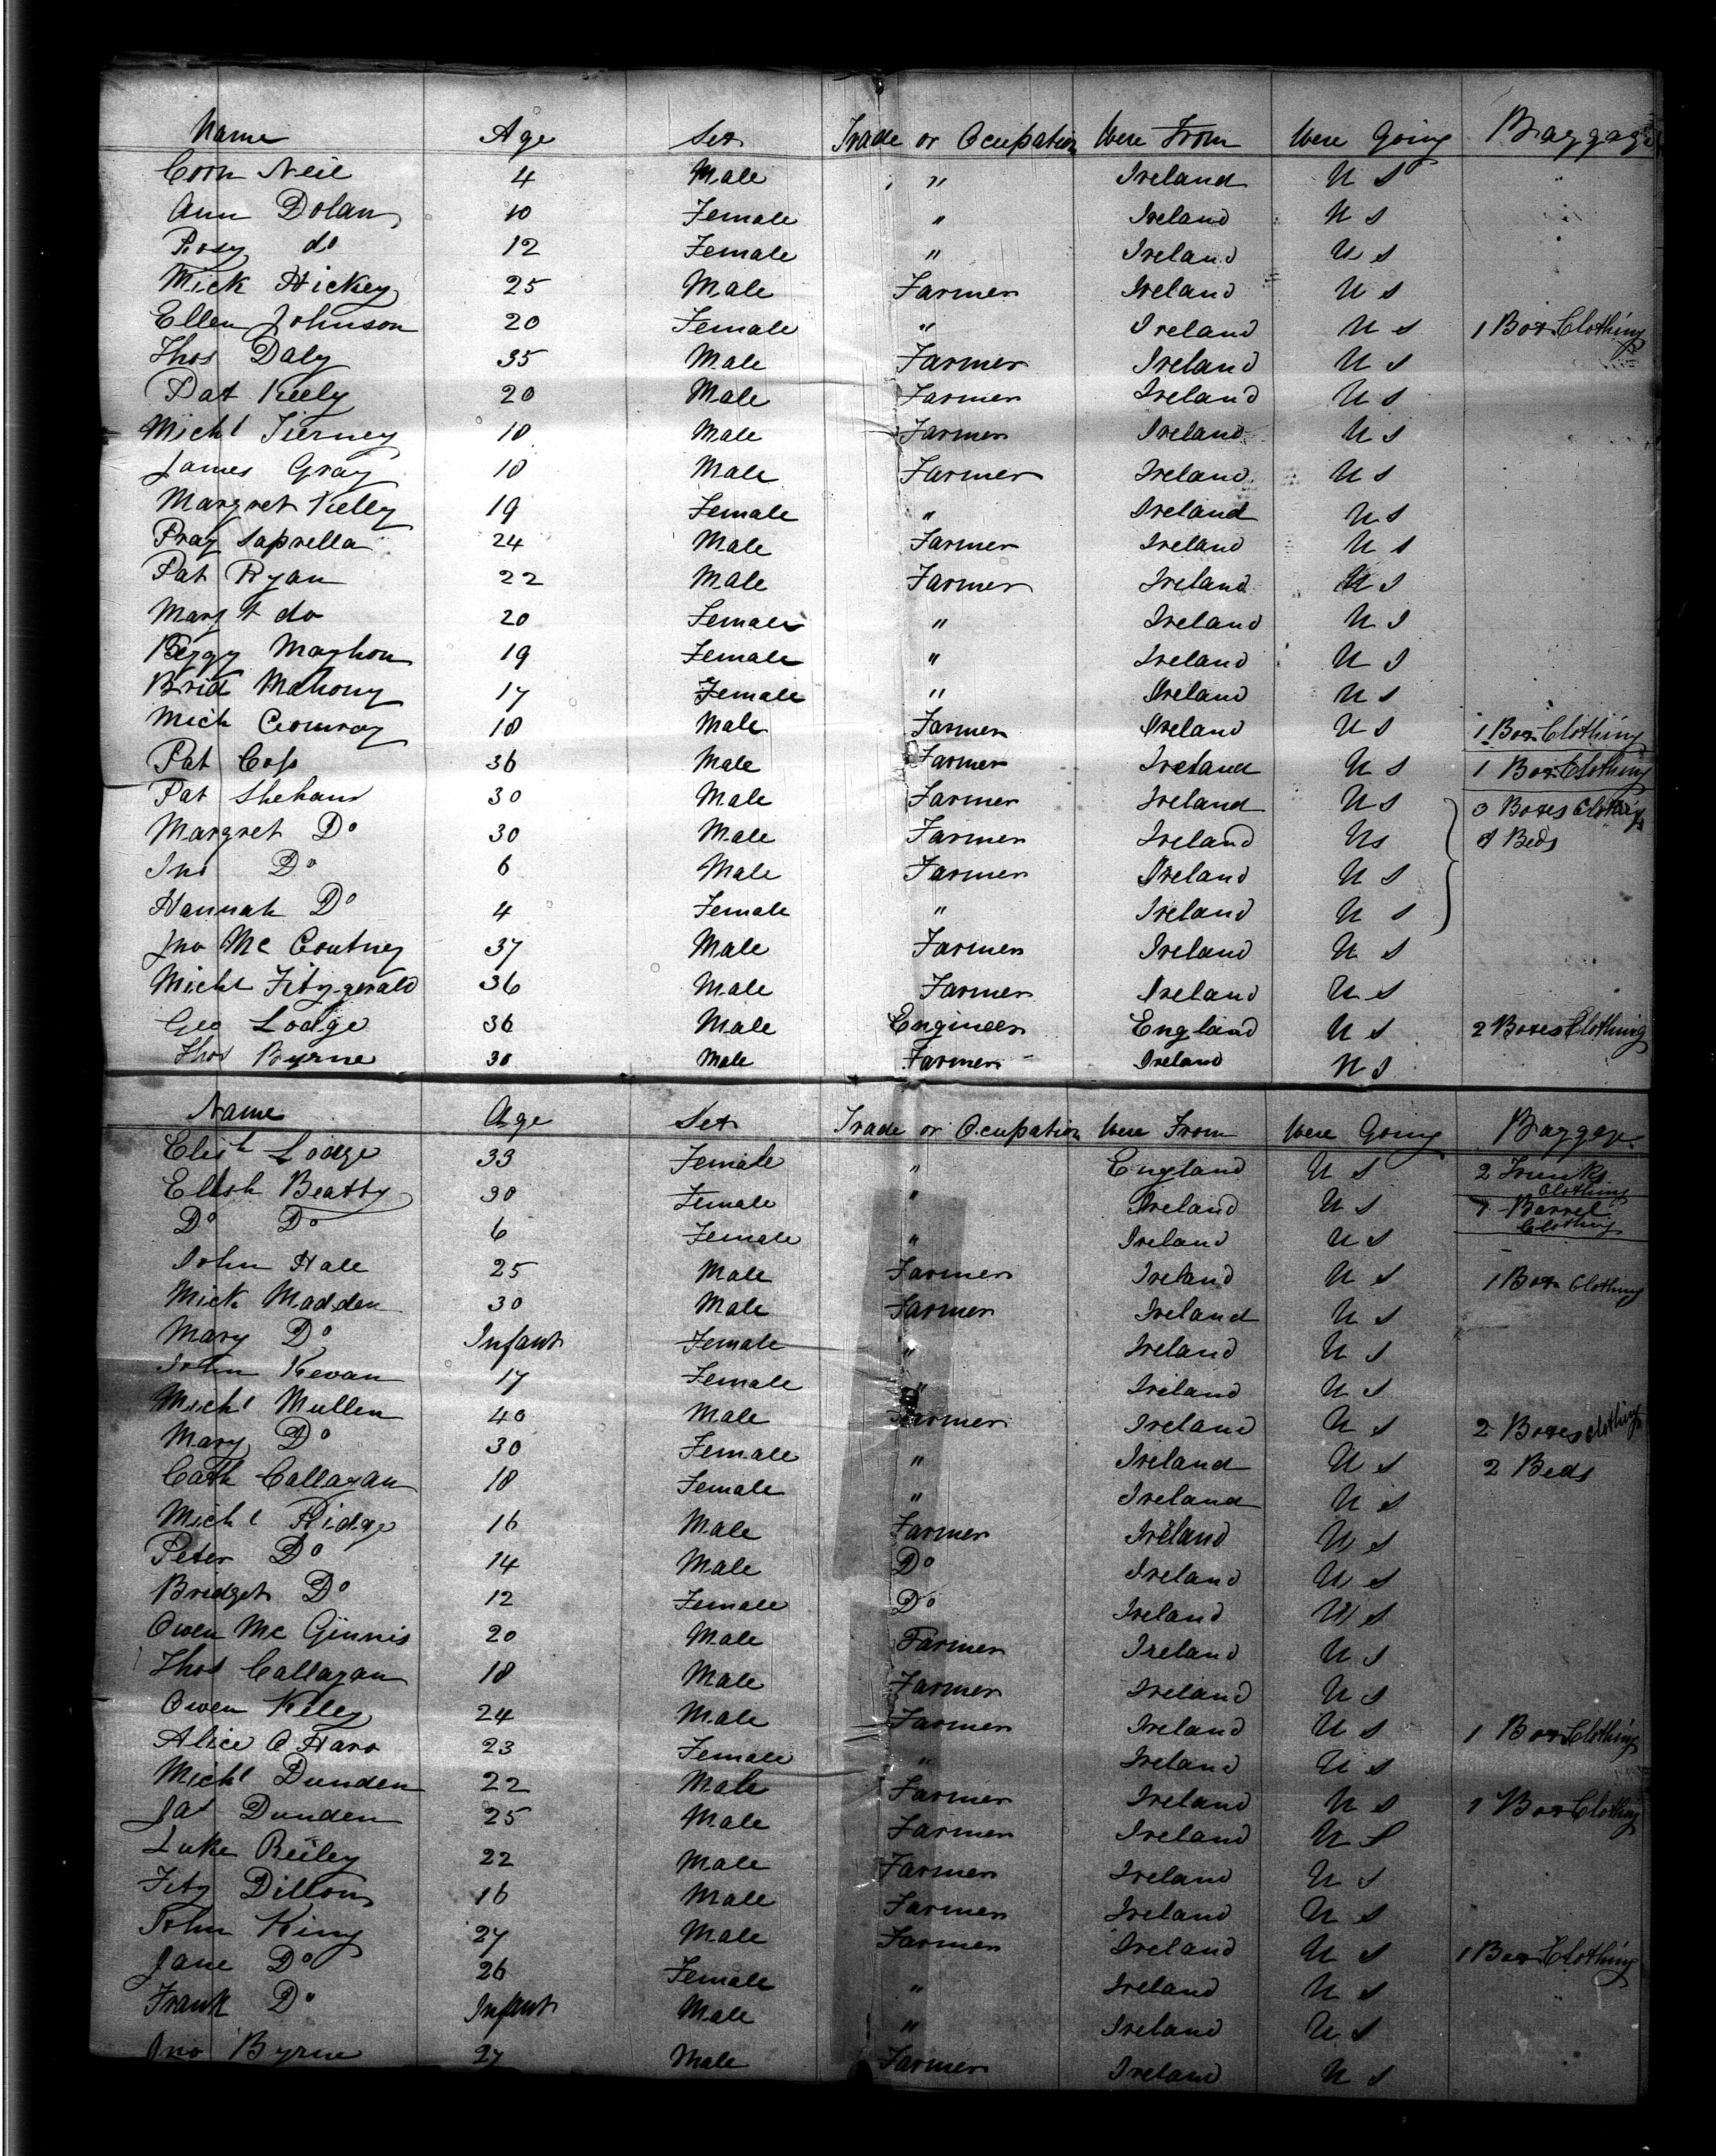 Name Age Sex Trade or Ocupation Were From Were Going Baggage
Corn Neil 4 Male " Ireland U S
Ann Dolan 10 Female " Ireland U S
Rosy do 12 Female " Ireland U S
Mick Hickey 25 Male Farmer Ireland U S
Ellen Johnson 20 Female " Ireland U S 1 Box Clothing
Thos Daly 35 Male Farmer Ireland U S
Pat Keely 20 Male Farmer Ireland U S
Michl Tierney 18 Male Farmer Ireland U S
James Gray 18 Male Farmer Ireland U S
Margret Kelly 19 Female " Ireland U S
24 Male Farmer Ireland U S
Pat Ryan 22 Male Farmer Ireland U S
Margt do 20 Female " Ireland U S
Peggy 19 Female " Ireland U S
Brid Mahony 17 Female " Ireland U S
Mich Conroy 18 Male Farmer Ireland U S 1 Box Clothing
Pat Coss 36 Male Farmer Ireland U S 1 Box Clothing
Pat Shehan 30 Male Farmer Ireland U S 3 Boxes Clothing
Margret Do 30 Male Farmer Ireland U S Beds
Jno Do 6 Male Farmer Ireland U S
Hannah Do 4 Female " Ireland U S
Jno Mc Coutney 37 Male Farmer Ireland U S
Michl Fitzgerald 36 Male Farmer Ireland U S
Geo Lodge 36 Male Engineer England U S 2 Boxes Clothing
Thos Byrne 30 Male Farmer Ireland U S
Name Age Sex Trade or Ocupation Were From Were Going Baggage
Elish Lodge 33 Female " England U S 2 Trunks Clothing
Elish Beatty 30 Female " Ireland U S 1 Barrel Clothing
Do Do 6 Female " Ireland U S
John Hale 25 Male Farmer Ireland U S 1 Box Clothing
Mick Madden 30 Male Farmer Ireland U S
Mary Do Infant Female " Ireland U S
John Kevan 17 Female " Ireland U S
Michl Mullen 40 Male Farmer Ireland U S 2 Boxes Clothing
Mary Do 30 Female " Ireland U S 2 Beds
Cath Callagan 18 Female " Ireland U S
Michl Ridge 16 Male Farmer Ireland U S
Peter Do 14 Male Do Ireland U S
Bridget Do 12 Female Do Ireland U S
Owen Mc Ginnis 20 Male Farmer Ireland U S
Thos Callagan 18 Male Farmer Ireland U S
Owen Kiley 24 Male Farmer Ireland U S 1 Box Clothing
Alice O Hara 23 Female " Ireland U S
Michl Dunden 22 Male Farmer Ireland U S 1 Box Clothing
Jas Dunden 25 Male Farmer Ireland U S
Luke Reiley 22 Male Farmer Ireland U S
Fitz Dillon 16 Male Farmer Ireland U S
John King 27 Male Farmer Ireland U S 1 Box Clothing
Jane Do 26 Female " Ireland U S
Frank Do Infant Male " Ireland U S
Jno Byrne 27 Male Farmer Ireland U S